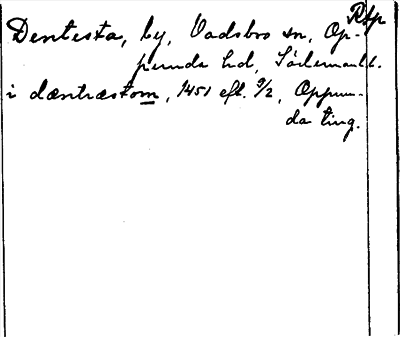 Rtp
Dentesta, by, Vadsbro sn, Op-
punda hd, Södermanl.
i dæntræstom, 1451 eft. 9/2, Oppun-
da ting.